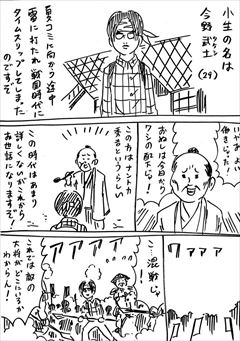 小生の名は
今野 武士
タケシ
(29)
夏コミに向かう途中
雷に打たれ戦国時代に
タイムスリップしてしまった
のですぞ
働きじゃ!
おぬしは今日から
ワシの配下じゃ!
この方はナントカ
秀吉というらしい
この時代はあまり
詳しくないがこれから
お世話になりますぞ
ワァァァ
こ…混戦じゃ!
アアアア
これでは敵の
大将がどこにいるか
わからん!